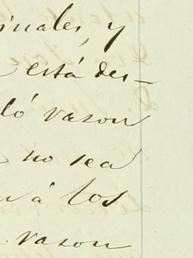 inales, y
está des-
ló varon
no sea
á los
varon